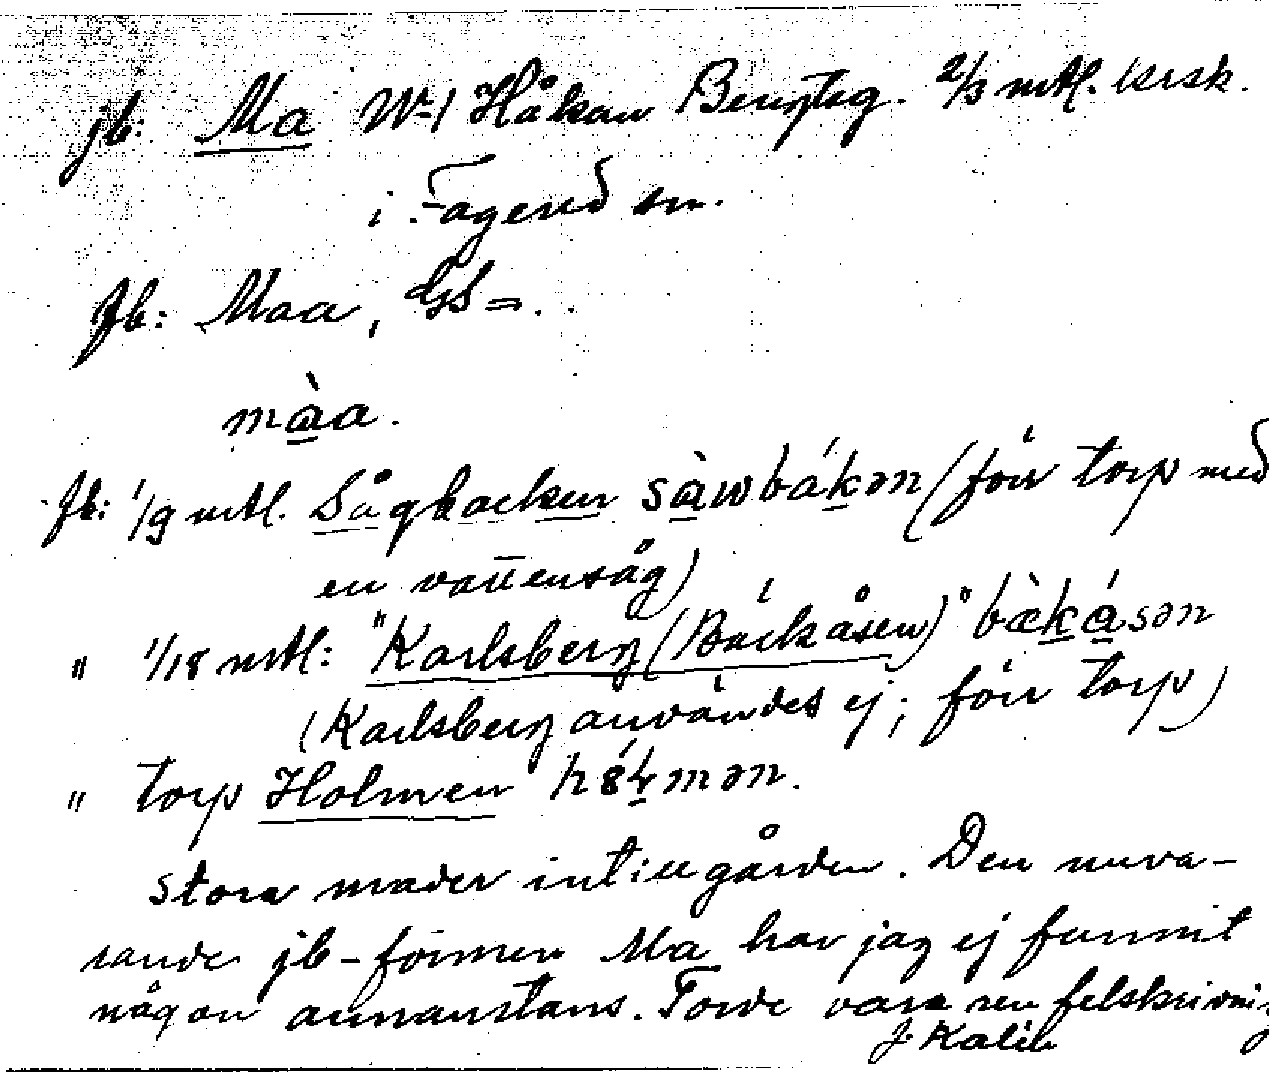 jb: Ma No 1 Håkan Bengtsg. 2/3 mtl. krsk.
i Fägerud sn.
Jb: Maa, GS =.
màa.
Jb: 1/9 mtl. Sågbacken sàwbákən (förr torp med
en vattensåg)
" 1/18 mtl: "Karlsberg (Bäckåsen)" bækásən
(Karlsberg användes ej; förr torp)
" torp Holmen
stora mader intill gården. Den nuva-
rande jb-formen Ma har jag ej funnit
någon annanstans. Torde vara ren felskrivning
J. Kalén